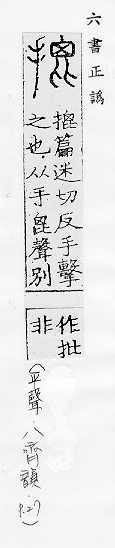 六書正譌
篇迷切反手擊
之也从手毘聲別
作批
非
(平聲.八齊韻.p.27)